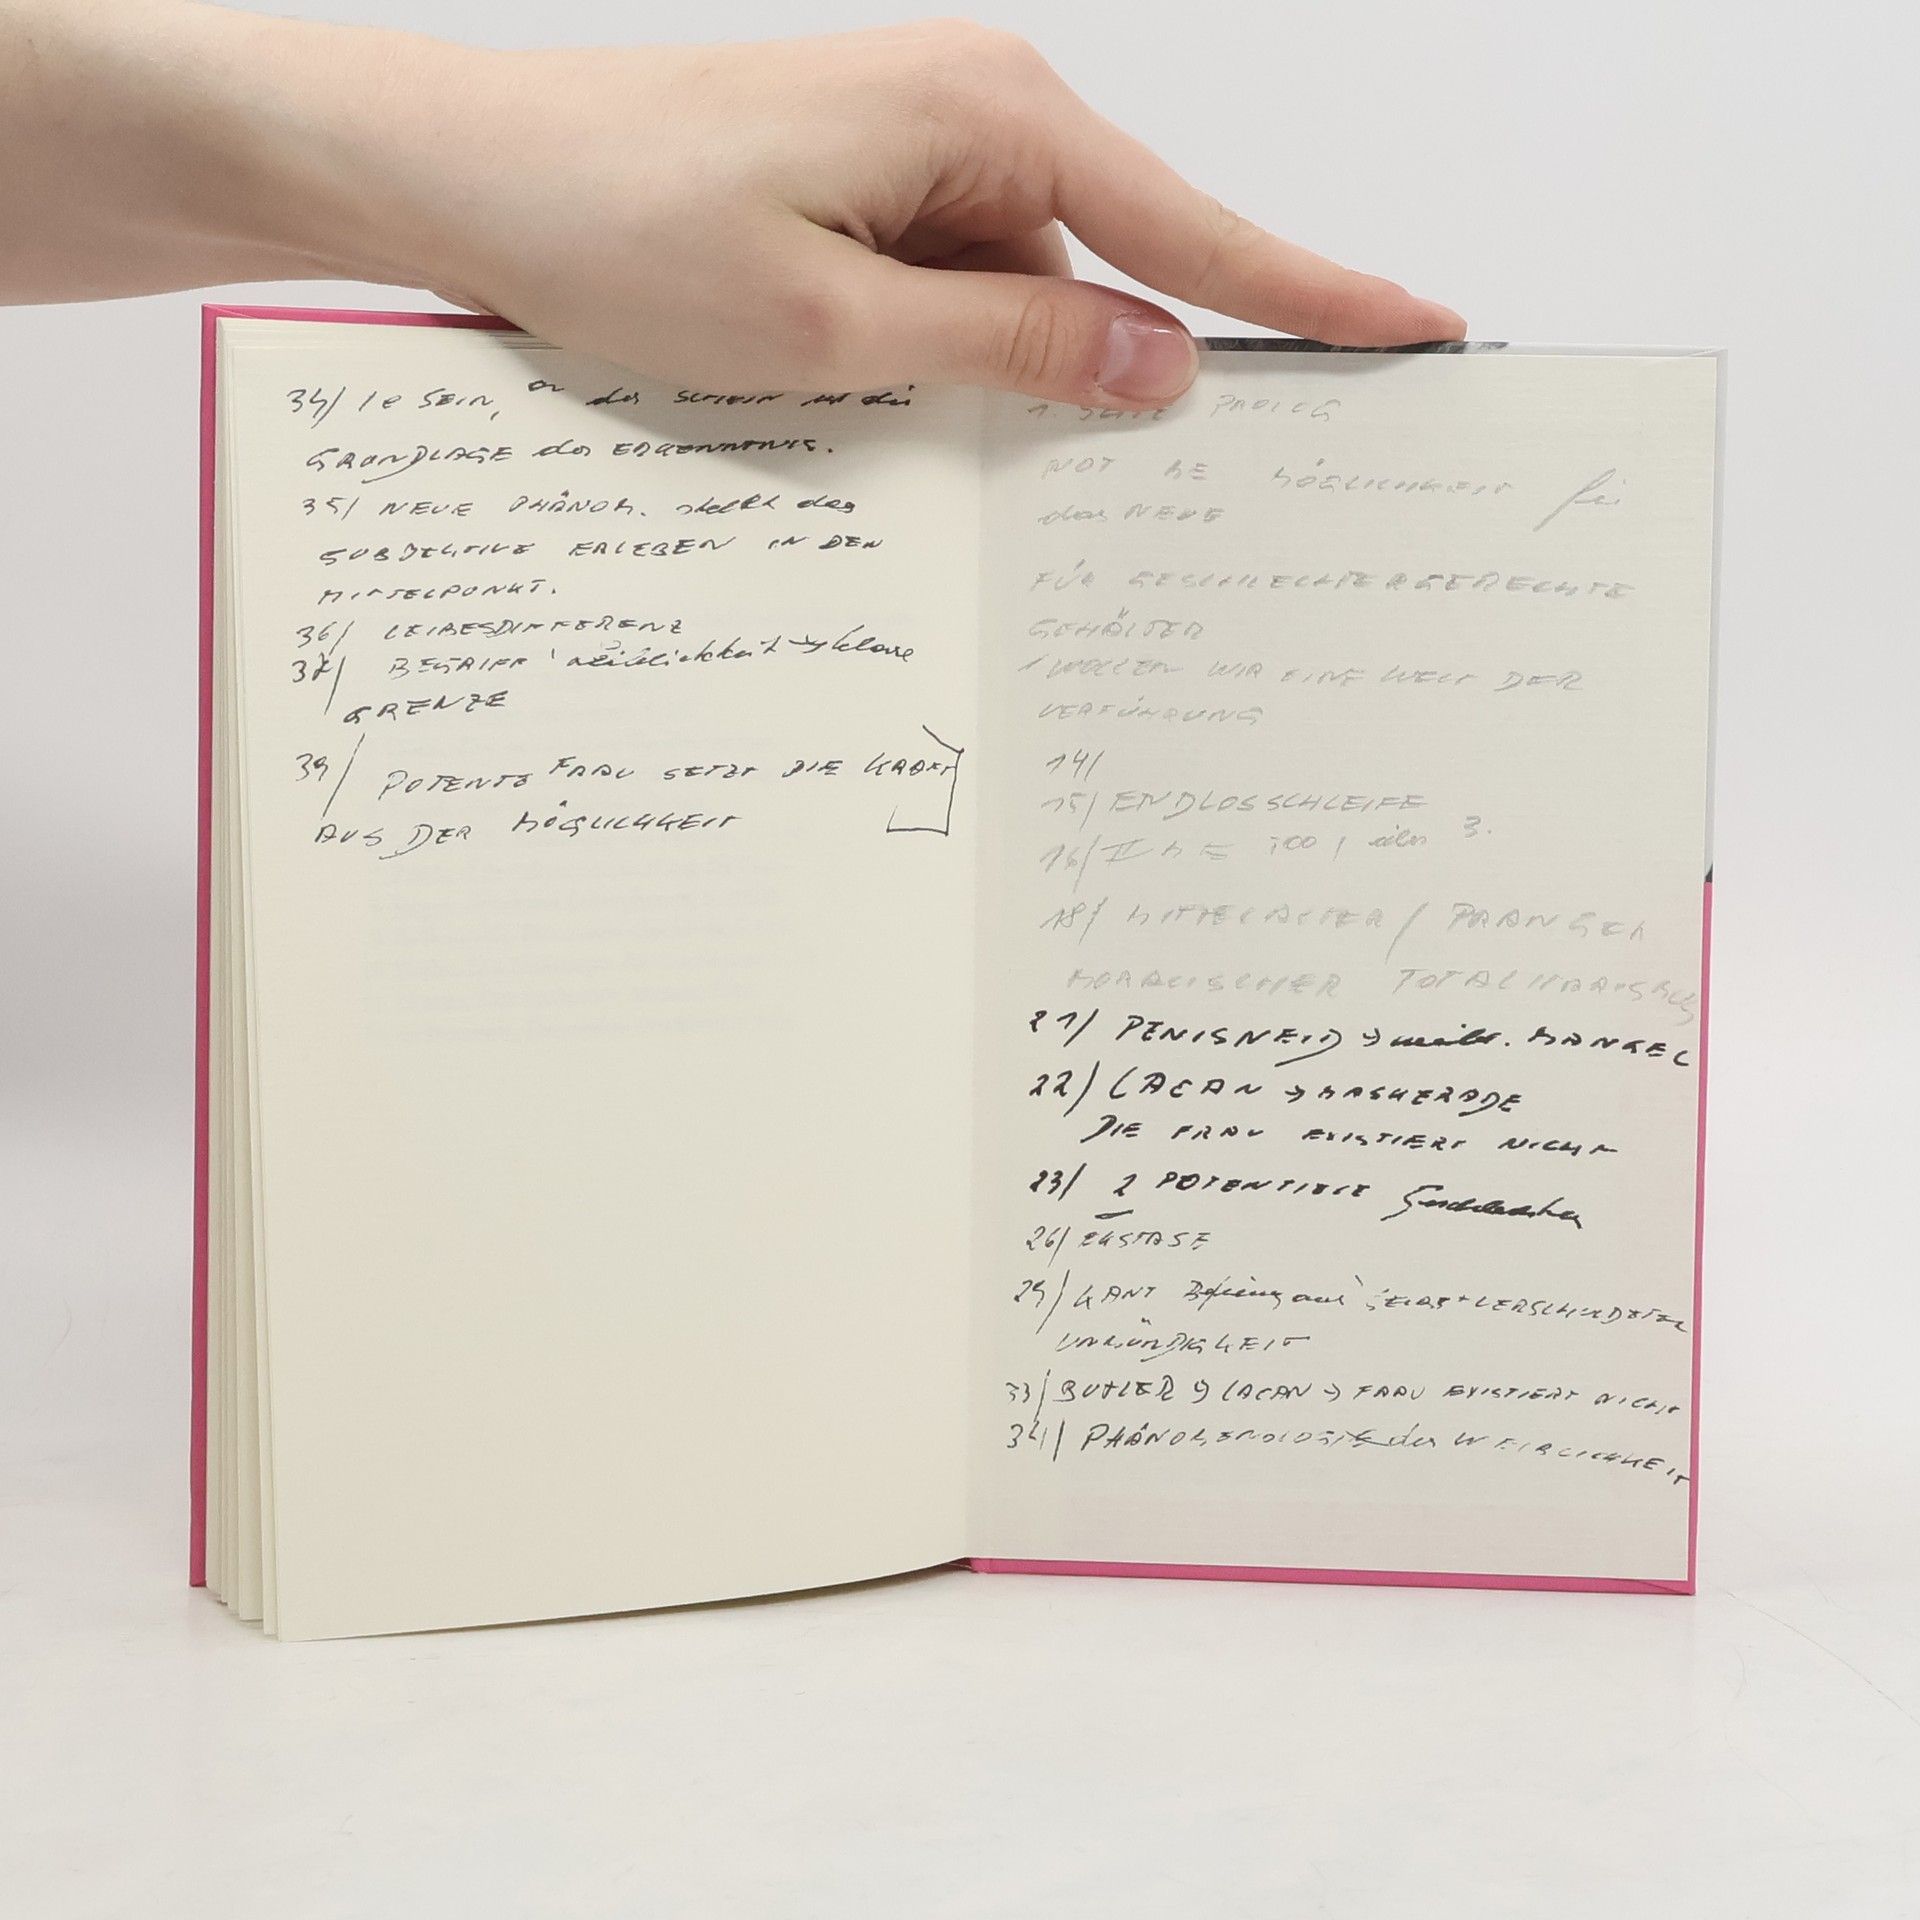 34/ SEIN, der SCHEIN ist die
GRUNDLAGE der ERKENNTNIS.
35/ NEUE PHÄNOM. stellt das
SUBJEKTIVE ERLEBEN IN DEN
MITTELPUNKT.
36/ LEIBESDIFFERENZ
37/ BEGRIFF Weiblichkeit → klare
GRENZE
39/ POTENTE FRAU SETZT DIE KRAFT
AUS DER MÖGLICHKEIT
1. SEITE PROLOG
NOT ME MÖGLICHKEIT für
das NEUE
FÜR GESCHLECHTERGERECHTE
GEHÄLTER
WOLLEN WIR EINE WELT DER
VERFÜHRUNG
14/
15/ ENDLOSSCHLEIFE
16/ ME TOO, 3.
18/ MITTELALTER / PRANGER
MORALISCHER TOTALITARISMUS
21/ PENISNEID → weibl. MANGEL
22/ LACAN → MASKERADE
DIE FRAU EXISTIERT NICHT
23/ 2 POTENTIELLE Geschlechter
26/ EKSTASE
29/ KANT Befreiung aus SELBSTVERSCHULDETER
UNMÜNDIGKEIT
33/ BUTLER → LACAN → FRAU EXISTIERT NICHT
34/ PHÄNOMENOLOGIE der WEIBLICHKEIT